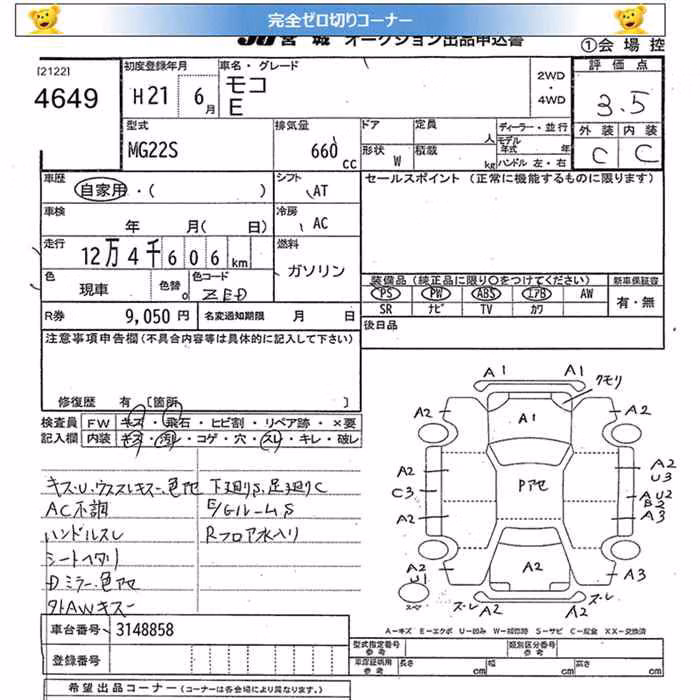 完全ゼロ切りコーナー
JU宮城 オークション出品申込書
①会場控
[2122]
4649
初度登録年月
H21 6月
車名・グレード
モコ
E
2WD
・
4WD
評価点
3.5
外装 内装
C C
型式
MG22S
排気量
660cc
ドア 定員 人
形状 W 積載 kg
ディーラー・並行
モデル年式 年
ハンドル 左・右
車歴
自家用・( )
シフト AT
車検
年 月( 日)
冷房 AC
走行
12万4千606km
燃料
ガソリン
色
現車
色替
色コード
ZED
R券 9,050円
名変通知期限 月 日
セールスポイント (正常に機能するものに限ります)
装備品(純正品に限り○をつけてください)
PS PW ABS エアB AW
SR ナビ TV カワ
新車保証書
有・無
後日品
注意事項申告欄(不具合内容等は具体的に記入して下さい)
修復歴 有 [箇所 ]
検査員
記入欄
FW キズ・飛石・ヒビ割・リペア跡・×要
内装 キズ・汚れ・コゲ・穴・スレ・キレ・破レ
キズ・U、ウススレキズー、色アセ
AC不調
ハンドルスレ
シートヘタリ
Dミラー、色アセ
外AWキズー
下廻りS、足廻りC
E/GルームS
Rフロア水入り
A1
A1
クモリ
A1
A2
A2
A2
C3
A2
Pアセ
A2
U3
A U2
B2
A3
A2
U1
A2
A3
ズレ
A2
A2
ズレ
A-キズ E-エクボ U-凹み W-補修跡 S-サビ C-腐食 XX-交換済
車台番号 3148858
登録番号
型式指定番号
参考
類別区分番号
参考
車庫証明用
参考
長さ cm 幅 cm 高さ cm
希望出品コーナー(コーナーは各会場により異なります。)